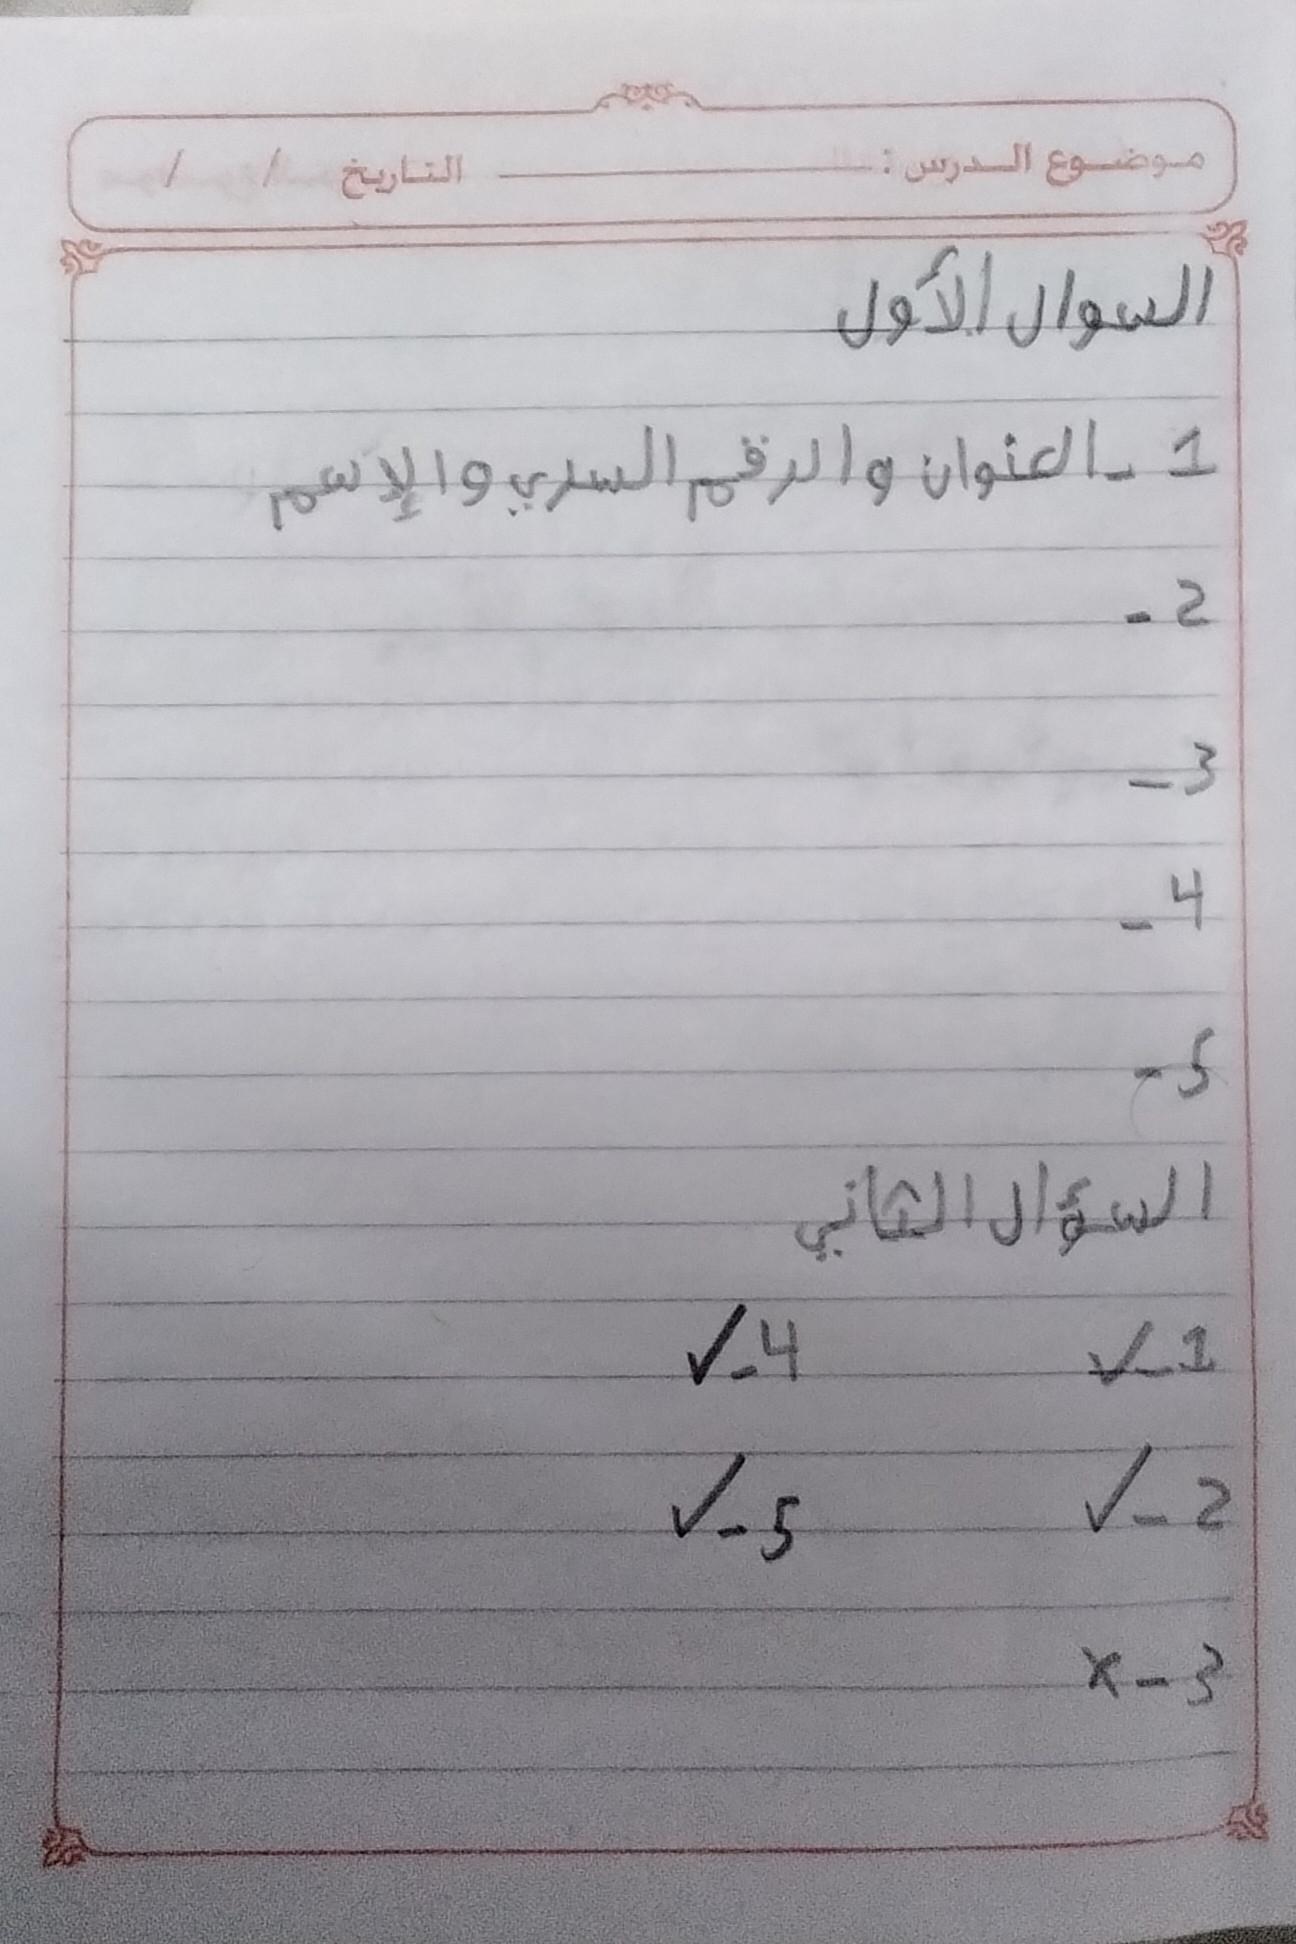 موضوع الدرس : التاريخ / /
السوال الأول
1 - العنوان والرقم السري والإسم
2 -
3 -
4 -
5 -
السؤال الثاني
1 - ✓ 4 - ✓
2 - ✓ 5 - ✓
3 - x